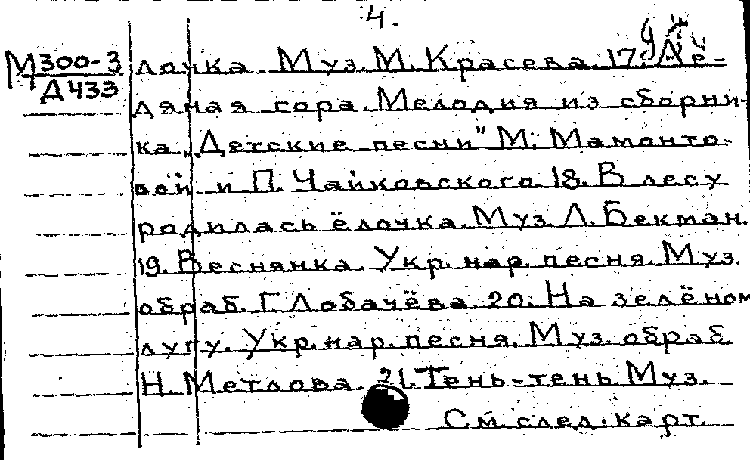 4.
М300-3 лочка. Муз. М. Красева. 17. Ле-
Д433
дяная гора. Мелодия из сборни-
ка „Детские песни" М. Мамонто-
вой и П. Чайковского. 18. В лесу
родилась ёлочка. Муз. Л. Бекман.
19. Веснянка. Укр. нар. песня. Муз.
обраб. Г. Лобачёва. 20. На зелёном
лугу. Укр. нар. песня. Муз. обраб.
Н. Метлова. 21. Тень-тень. Муз.
См. след. карт.